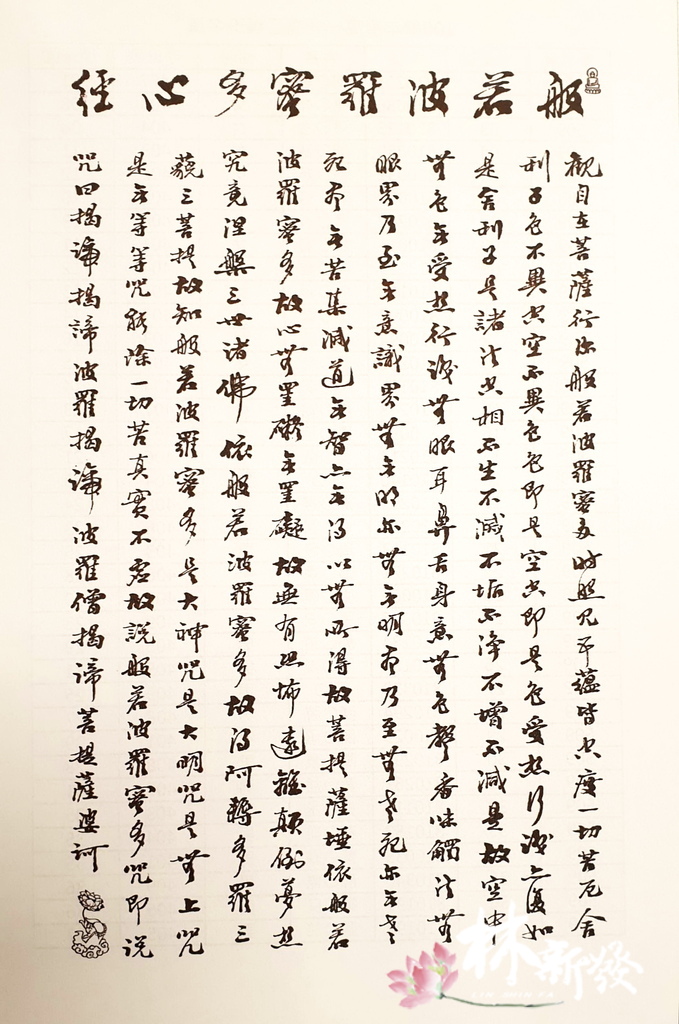 般若波羅蜜多心經
觀自在菩薩行深般若波羅蜜多時照見五蘊皆空度一切苦厄舍
利子色不異空空不異色色即是空空即是色受想行識亦復如
是舍利子是諸法空相不生不滅不垢不淨不增不減是故空中
無色無受想行識無眼耳鼻舌身意無色聲香味觸法無
眼界乃至無意識界無無明亦無無明盡乃至無老死亦無老
死盡無苦集滅道無智亦無得以無所得故菩提薩埵依般若
波羅蜜多故心無罣礙無罣礙故無有恐怖遠離顛倒夢想
究竟涅槃三世諸佛依般若波羅蜜多故得阿耨多羅三
藐三菩提故知般若波羅蜜多是大神咒是大明咒是無上咒
是無等等咒能除一切苦真實不虛故說般若波羅蜜多咒即说
咒曰揭諦揭諦波羅揭諦波羅僧揭諦菩提薩婆訶
林新發